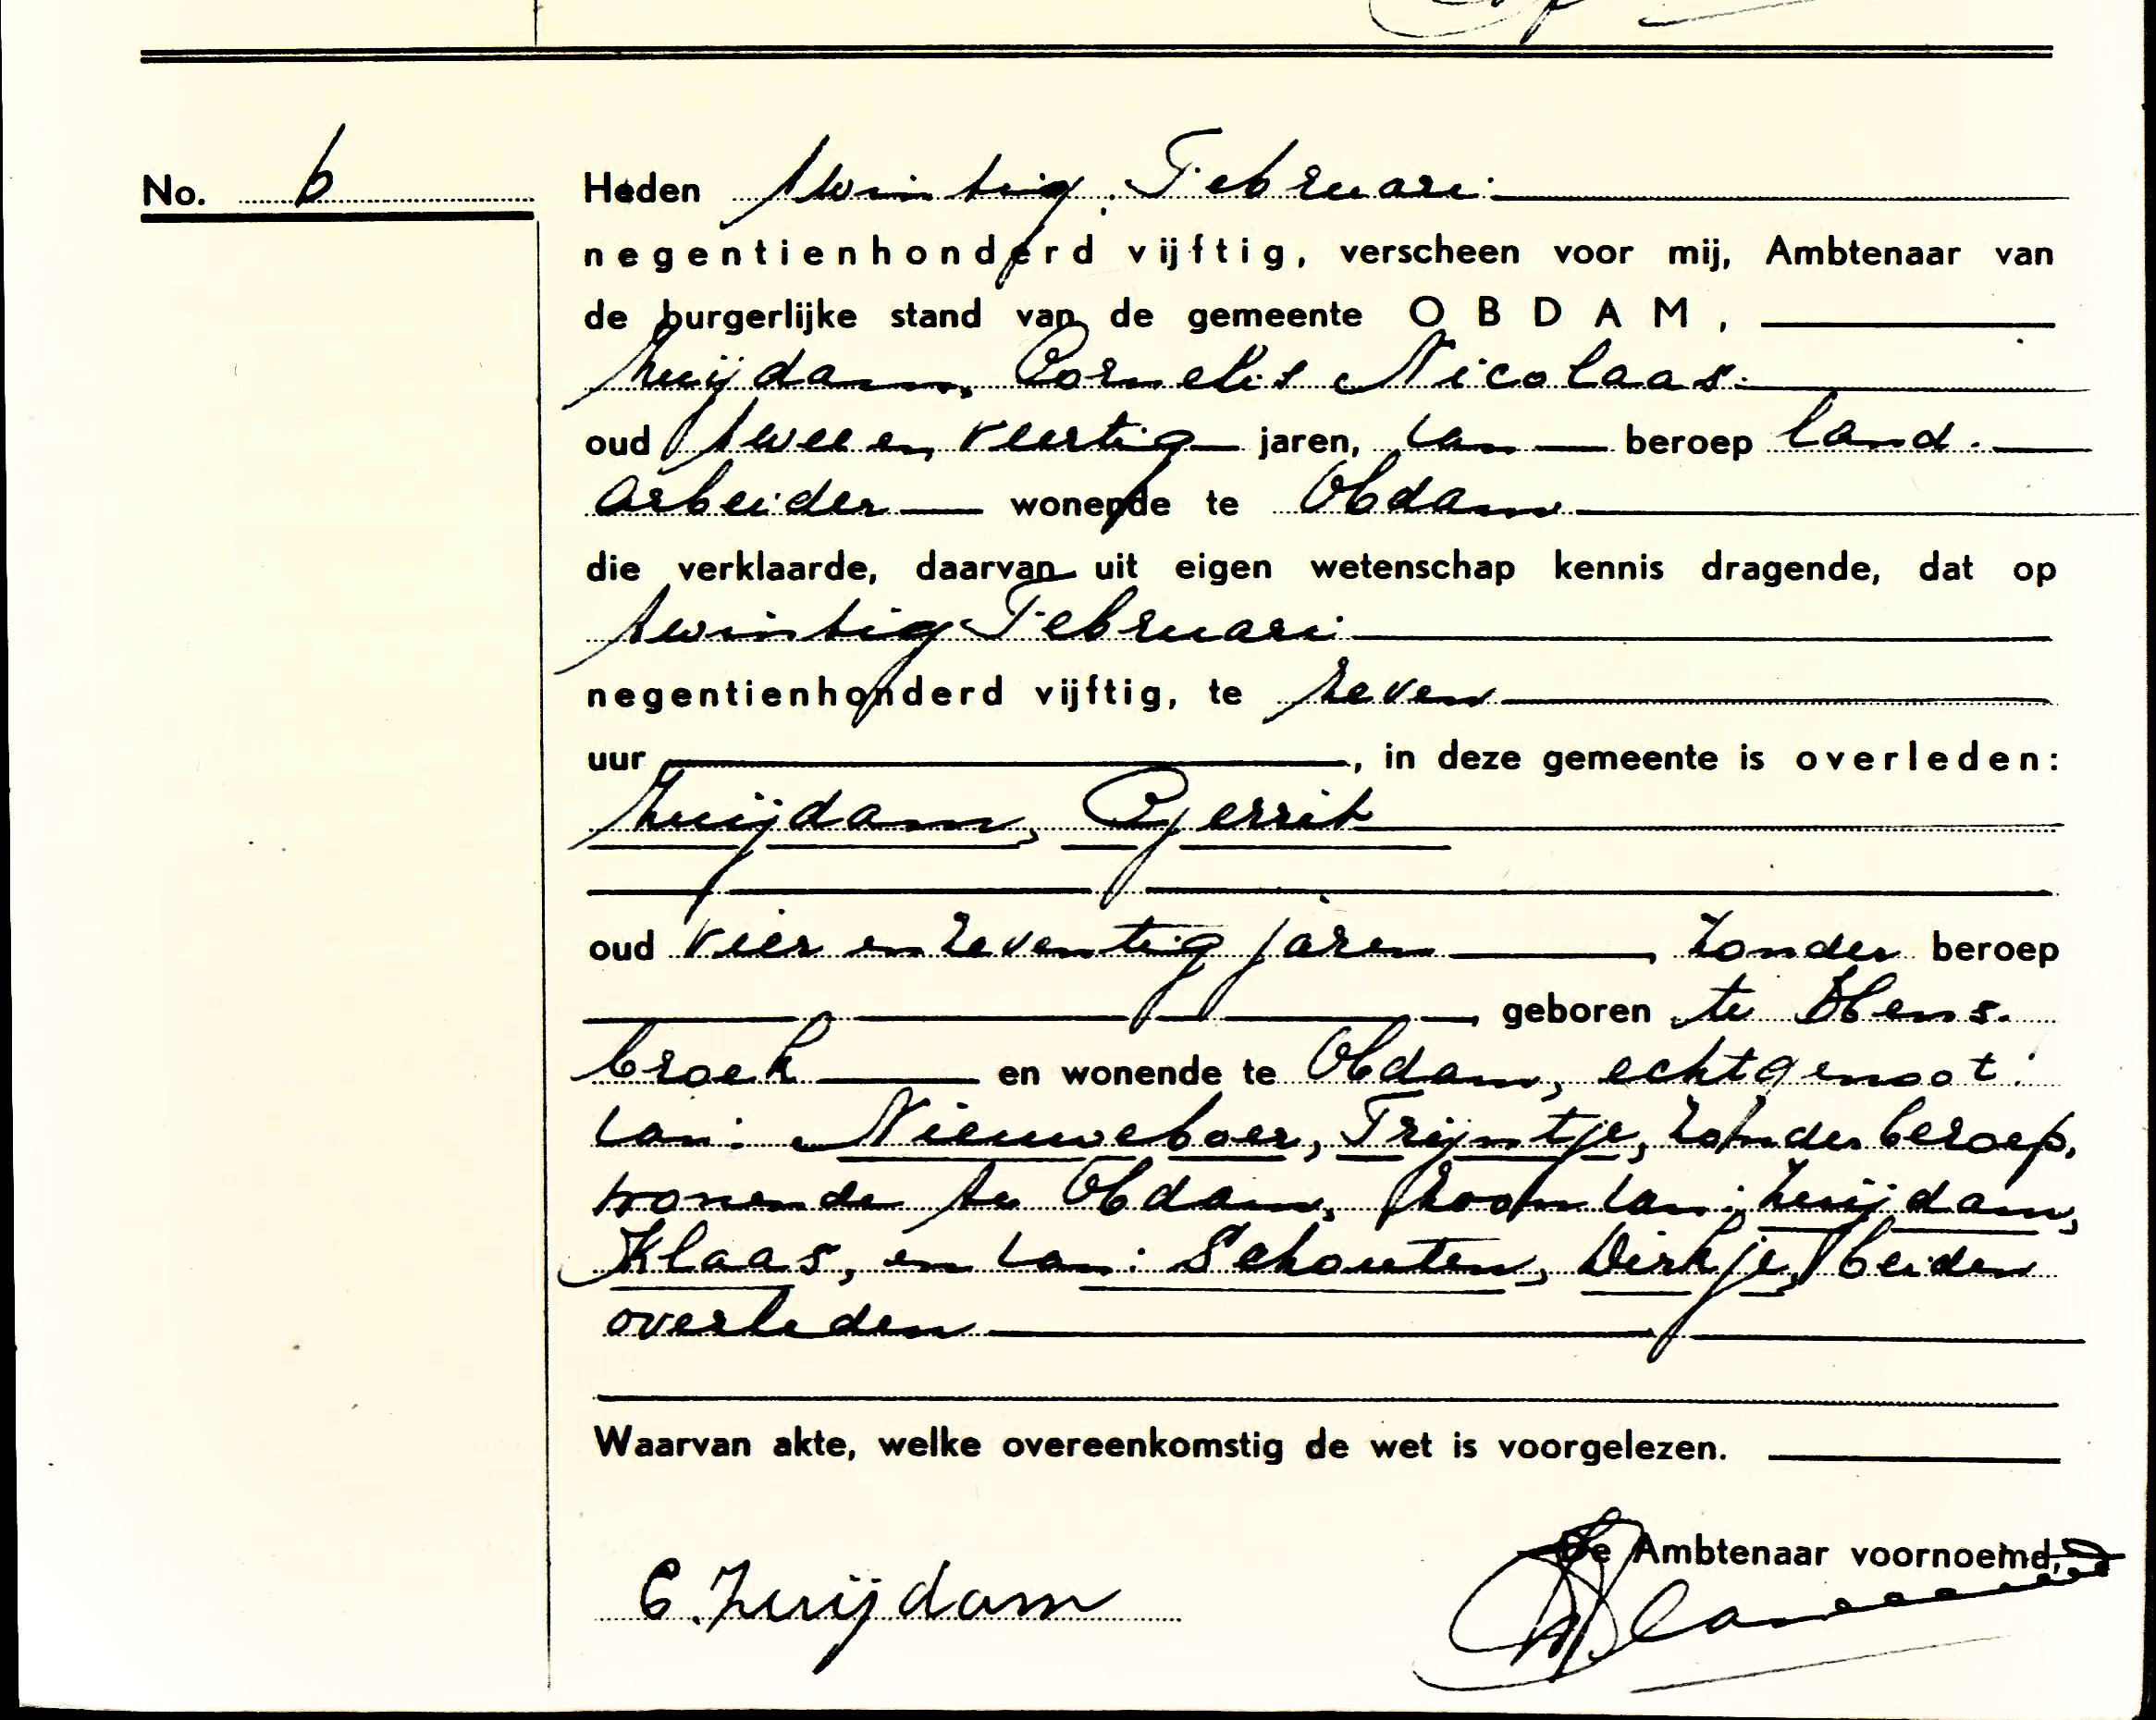 No. 6
Heden twintig Februari
negentienhonderd vijftig, verscheen voor mij, Ambtenaar van
de burgerlijke stand van de gemeente OBDAM,
Zuijdam, Cornelis Nicolaas
oud tweeen veertig jaren, van beroep land-
arbeider wonende te Obdam
die verklaarde, daarvan uit eigen wetenschap kennis dragende, dat op
twintig Februari
negentienhonderd vijftig, te zeven
uur , in deze gemeente is overleden:
Zuijdam, Gerrit
oud vier en zeventig jaren , zonder beroep
, geboren te Hens-
broek en wonende te Obdam, echtgenoot
van: Nieuweboer, Trijntje, zonder beroep,
wonende te Obdam, zoon van: Zuijdam,
Klaas, en van: Schouten, Dirkje, beiden
overleden
Waarvan akte, welke overeenkomstig de wet is voorgelezen.
De Ambtenaar voornoemd,
C. Zuijdam